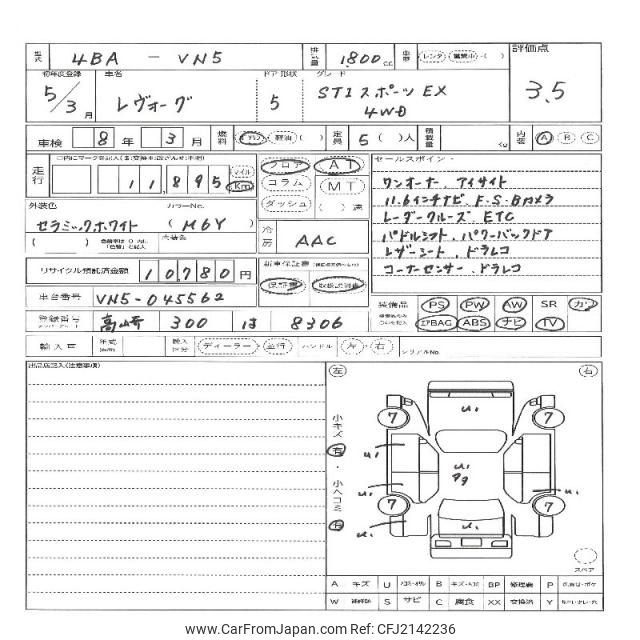 型式 4BA - VN5 排気量 1,800 cc 車歴 レンタ・営業車・( ) 評価点
初年度登録 車名 ドア 形状 グレード
5/3月 レヴォーグ 5 STIスポーツ EX 3.5
4WD
車検 8 年 3 月 燃料 ガソリン 軽油 ( ) 定員 5 ( )人 積載量 内装 A B C
走行 11,895 マイル Km フロア AT セールスポイント
コラム MT ワンオーナー、アイサイト
ダッシュ ( )速 11.6インチナビ、F・S・Bカメラ
外装色 カラーNo. レーダークルーズ ETC
セラミックホワイト (M6Y) 冷房 AAC パドルシフト、パワーバックドア
レザーシート、ドラレコ
リサイクル預託済金額 10780円 新車保証書 コーナーセンサー、ドラレコ
保証書 取扱説明書
車台番号 VN5-045562 装備品 PS PW AW SR カワ
登録番号 高崎 300 は 8306 エアBAG ABS ナビ TV
輸入車 年式 輸入区分 ディーラー 並行 ハンドル 左・右 シリアルNo.
出品店記入(注意事項) 左 右
小キズ 有・小ヘコミ 有
U1
7 7
U1
U1
U1 U1
7 7
U1 U1
スペア
A キズ U B BP 修理跡 P
W S サビ C 腐食 XX 交換済 Y
www.CarFromJapan.com - CFJ2142236